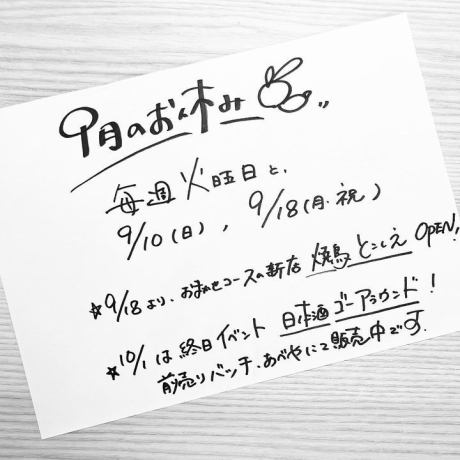 9月のお休み
毎週火曜日と、
9/10(日), 9/18(月・祝)
☆9/18より、おまかせコースの新店 焼鳥とこしえ OPEN!
☆10/1は終日イベント 日本酒ゴーアラウンド!
前売りバッチ、あべやにて販売中です.